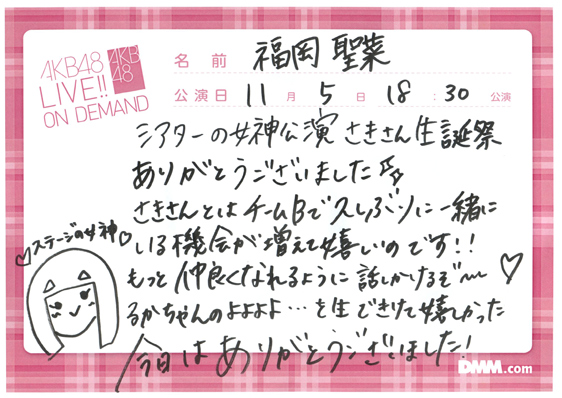 AKB48
LIVE!!
ON DEMAND
AKB
48
名前 福岡 聖菜
公演日 11月 5日 18:30 公演
シアターの女神公演 さきさん生誕祭
ありがとうございました
さきさんとはチームBで久しぶりに一緒に
いる機会が増えて嬉しいのです!!
もっと仲良くなれるように話しかけるぞ〜
るかちゃんのよよよよ…を生できけて嬉しかった
今日はありがとうございました!
♡ステージの女神♡
DMM.com